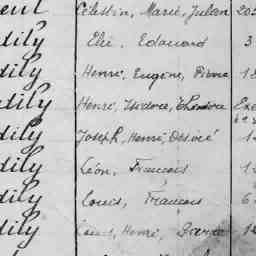 Célestin, Marie, Julien 20
dily Elie, Edouard 3
dily Henri, Eugène, Pierre 1
dily Henri, Isidore, Théodore
dily Joseph, Henri, Désiré 1
dily Léon, François 1
dily Louis, François 6
dily Louis, Henri, Pierre 1